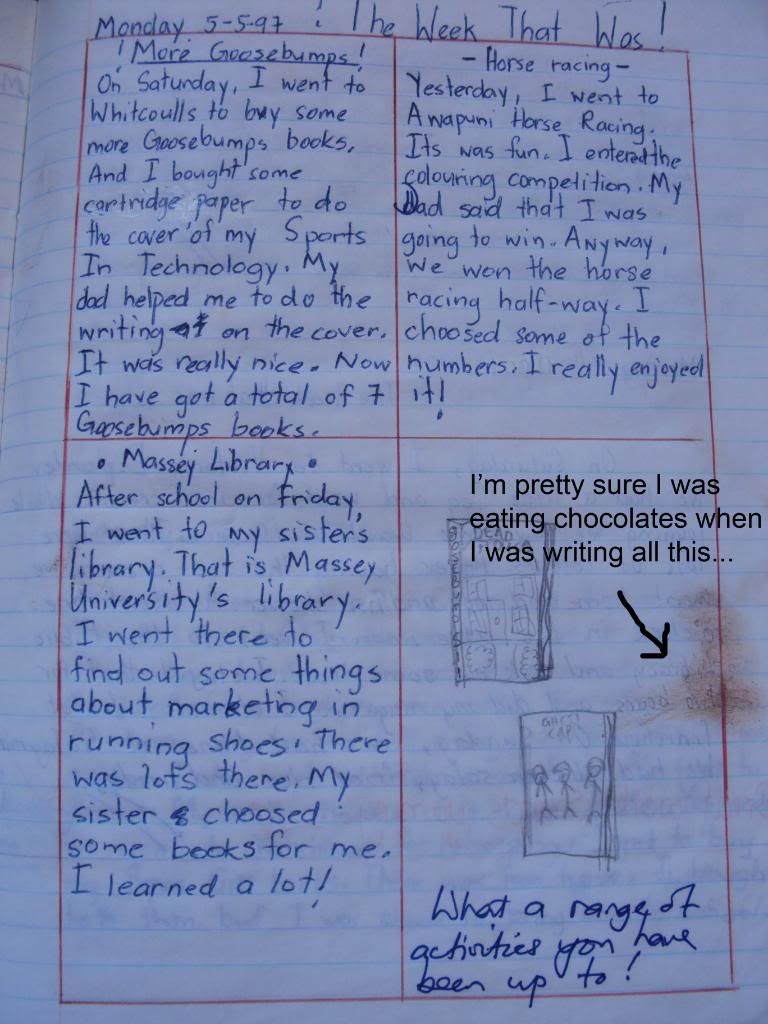 Monday 5-5-97 ! The Week That Was!
! More Goosebumps!
On Saturday, I went to
Whitcoulls to buy some
more Goosebumps books.
And I bought some
cartridge paper to do
the cover of my Sports
In Technology. My
dad helped me to do the
writing on the cover.
It was really nice. Now
I have got a total of 7
Goosebumps books.
- Horse racing -
Yesterday, I went to
Awapuni Horse Racing.
Its was fun. I entered the
colouring competition. My
Dad said that I was
going to win. Anyway,
we won the horse
racing half-way. I
choosed some of the
numbers. I really enjoyed
it!
• Massey Library •
After school on Friday,
I went to my sister's
library. That is Massey
University's library.
I went there to
find out some things
about marketing in
running shoes. There
was lots there. My
sister choosed
some books for me.
I learned a lot!
I'm pretty sure I was
eating chocolates when
I was writing all this...
DEAD
What a range of
activities you have
been up to!